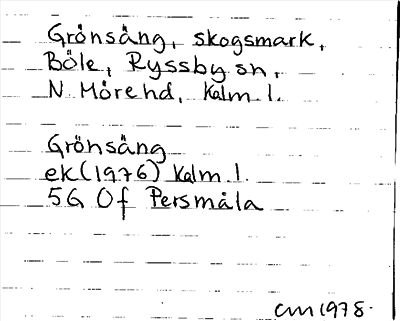 Grönsäng, skogsmark,
Böle, Ryssby sn,
N Möre hd, Kalm l.
Grönsäng
ek (1976) Kalm l.
5G 0f Persmåla
CM 1978.